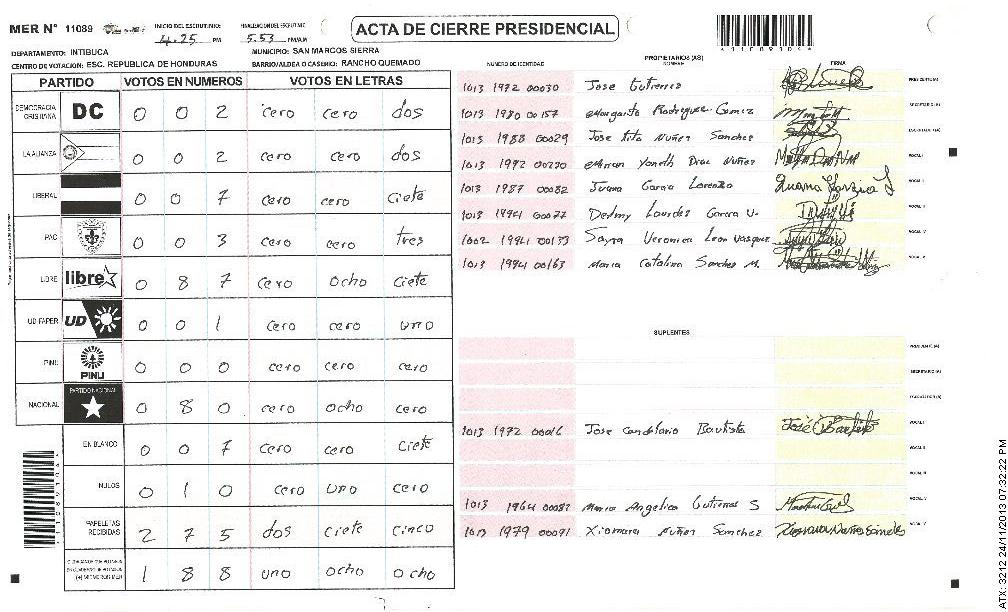 MER Nº 11089 INICIO DEL ESCRUTINIO: 4:25 PM FINALIZACION DEL ESCRUTINIO 5:53 PM/AM ACTA DE CIERRE PRESIDENCIAL
DEPARTAMENTO: INTIBUCA MUNICIPIO: SAN MARCOS SIERRA
CENTRO DE VOTACION: ESC. REPUBLICA DE HONDURAS BARRIO/ALDEA O CASERIO: RANCHO QUEMADO
PARTIDO VOTOS EN NUMEROS VOTOS EN LETRAS
DEMOCRACIA CRISTIANA DC 0 0 2 cero cero dos
LA ALIANZA 0 0 2 cero cero dos
LIBERAL 0 0 7 cero cero ciete
PAC 0 0 3 cero cero tres
LIBRE libre 0 8 7 cero ocho ciete
UD FAPER UD 0 0 1 cero cero uno
PINU PINU 0 0 0 cero cero cero
NACIONAL PARTIDO NACIONAL 0 8 0 cero ocho cero
EN BLANCO 0 0 7 cero cero ciete
NULOS 0 1 0 cero uno cero
PAPELETAS RECIBIDAS 2 7 5 dos ciete cinco
(+) MIEMBROS MER 1 8 8 uno ocho ocho
NUMERO DE IDENTIDAD PROPIETARIOS (AS) NOMBRE FIRMA
1013 1972 00030 Jose Gutierrez PRESIDENTE (A)
1013 1980 00157 Margarita Rodriguez Gomez SECRETARIO (A)
1013 1988 00029 Jose Tito Nuñez Sanchez ESCRUTADOR (A)
1013 1992 00230 Mirian Yaneth Diaz Nuñez VOCAL I
1013 1987 00082 Juana Garcia Lorenzo VOCAL II
1013 1994 00077 Delmy Lourdes Garcia V. VOCAL III
1002 1994 00133 Sayra Veronica Leon Vasquez VOCAL IV
1013 1994 00163 Maria Catalina Sanchez M. VOCAL V
SUPLENTES
PRESIDENTE (A)
SECRETARIO (A)
ESCRUTADOR (A)
1013 1972 00016 Jose Candelario Bautista VOCAL I
VOCAL II
VOCAL III
1013 1964 00082 Maria Angelica Gutierres S VOCAL IV
1013 1979 00091 Xiomara Nuñez Sanchez VOCAL V
ATX: 3212 24/11/2013 07:32:22 PM